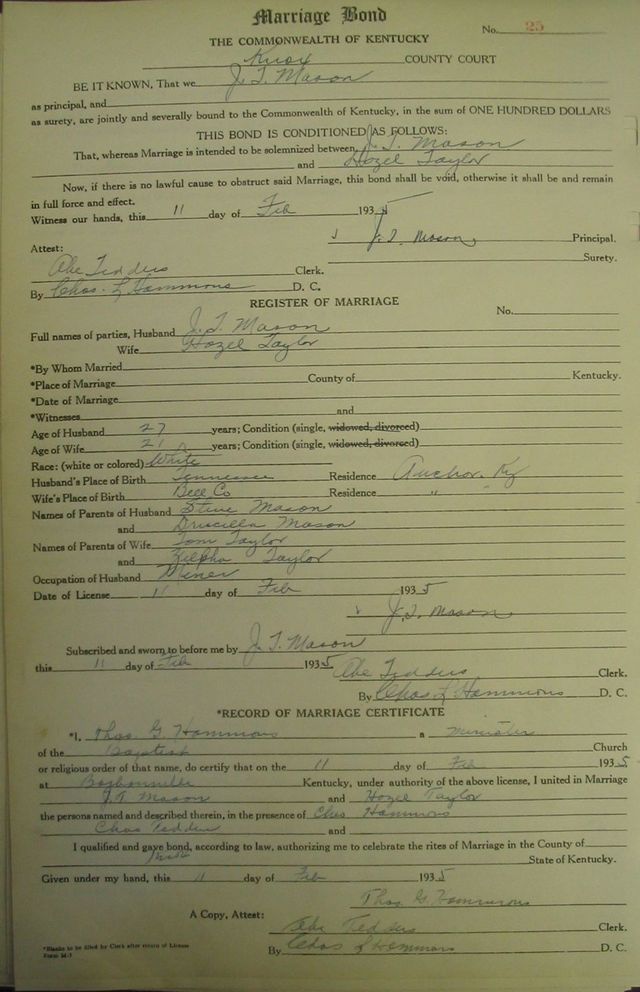 Marriage Bond
No. 25
THE COMMONWEALTH OF KENTUCKY
Knox COUNTY COURT
BE IT KNOWN, That we J. T. Mason
as principal, and
as surety, are jointly and severally bound to the Commonwealth of Kentucky, in the sum of ONE HUNDRED DOLLARS
THIS BOND IS CONDITIONED AS FOLLOWS:
That, whereas Marriage is intended to be solemnized between J. T. Mason
and Hozel Taylor
Now, if there is no lawful cause to obstruct said Marriage, this bond shall be void, otherwise it shall be and remain
in full force and effect.
Witness our hands, this 11 day of Feb 1935
J. T. Mason Principal.
Attest: Surety.
Abe Tedders Clerk.
By Chas. L Hammons D. C.
REGISTER OF MARRIAGE
No.
Full names of parties, Husband J. T. Mason
Wife Hozel Taylor
*By Whom Married
*Place of Marriage County of Kentucky.
*Date of Marriage
*Witnesses and
Age of Husband 27 years; Condition (single, widowed, divorced)
Age of Wife 21 years; Condition (single, widowed, divorced)
Race: (white or colored) White
Husband's Place of Birth Tennessee Residence Anchor, Ky
Wife's Place of Birth Bell Co Residence " "
Names of Parents of Husband Steve Mason
and Druscilla Mason
Names of Parents of Wife Tom Taylor
and Zilpha Taylor
Occupation of Husband Miner
Date of License 11 day of Feb 1935
J. T. Mason
Subscribed and sworn to before me by J. T. Mason
this 11 day of Feb 1935 Abe Tedders Clerk.
By Chas L Hammons D. C.
*RECORD OF MARRIAGE CERTIFICATE
*I, Thos. G. Hammons a minister
of the Baptist Church
or religious order of that name, do certify that on the 11 day of Feb 1935
at Barbourville Kentucky, under authority of the above license, I united in Marriage
J. T. Mason and Hozel Taylor
the persons named and described therein, in the presence of Chas Hammons
Chas Tedders and
I qualified and gave bond, according to law, authorizing me to celebrate the rites of Marriage in the County of
Knox State of Kentucky.
Given under my hand, this 11 day of Feb 1935
Thos. G. Hammons
A Copy, Attest:
Abe Tedders Clerk.
By Chas L Hammons D. C.
*Blanks to be filled by Clerk after return of License